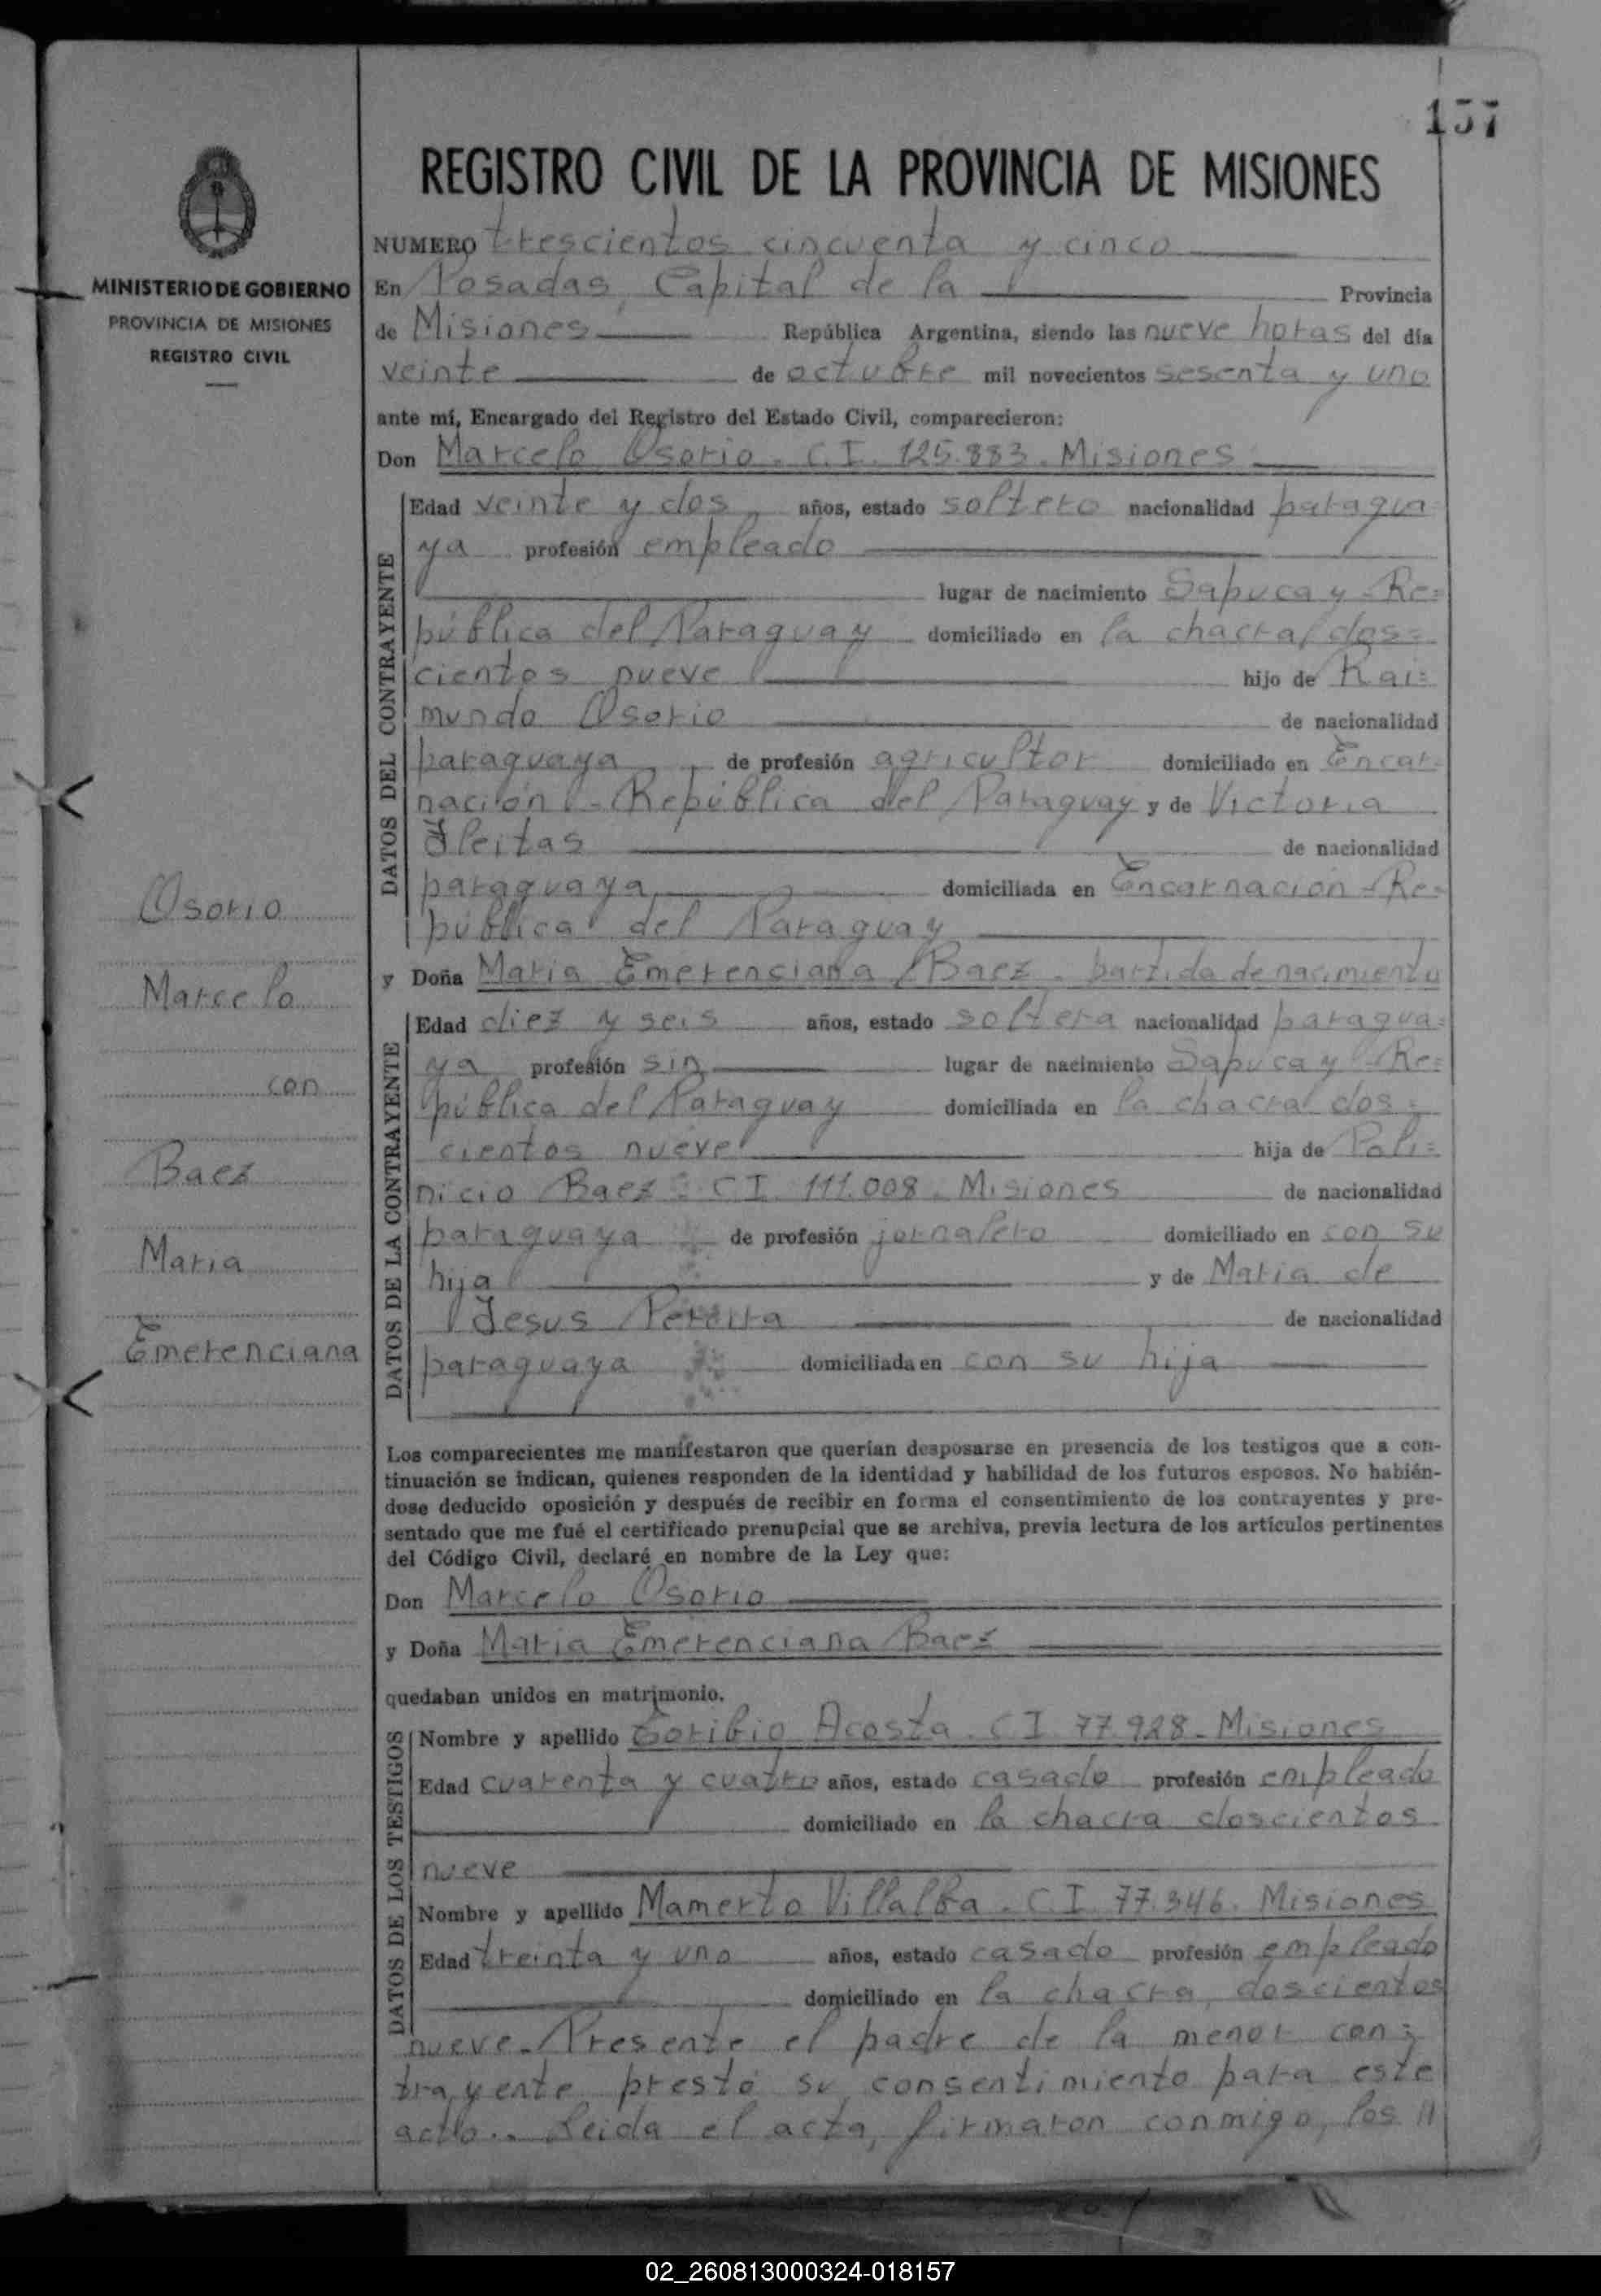 157
REGISTRO CIVIL DE LA PROVINCIA DE MISIONES
MINISTERIO DE GOBIERNO
PROVINCIA DE MISIONES
REGISTRO CIVIL
NUMERO trescientos cincuenta y cinco
En Posadas, Capital de la Provincia
de Misiones República Argentina, siendo las nueve horas del día
veinte de octubre mil novecientos sesenta y uno
ante mí, Encargado del Registro del Estado Civil, comparecieron:
Don Marcelo Osorio. C.I. 125.883. Misiones
DATOS DEL CONTRAYENTE
Edad veinte y dos años, estado soltero nacionalidad paragua=
ya profesión empleado
lugar de nacimiento Sapucay - Re=
pública del Paraguay domiciliado en la chacra dos=
cientos nueve hijo de Rai=
mundo Osorio de nacionalidad
paraguaya de profesión agricultor domiciliado en Encar=
nación - República del Paraguay y de Victoria
Fleitas de nacionalidad
paraguaya domiciliada en Encarnación - Re=
pública del Paraguay
y Doña Maria Emerenciana Baez - partida de nacimiento
DATOS DE LA CONTRAYENTE
Edad diez y seis años, estado soltera nacionalidad paragua=
ya profesión sin lugar de nacimiento Sapucay - Re=
pública del Paraguay domiciliada en la chacra dos=
cientos nueve hija de Poli=
nicio Baez - C.I. 111.008. Misiones de nacionalidad
paraguaya de profesión jornalero domiciliado en con su
hija y de Maria de
Jesus Pereira de nacionalidad
paraguaya domiciliada en con su hija
Osorio
Marcelo
con
Baez
Maria
Emerenciana
Los comparecientes me manifestaron que querían desposarse en presencia de los testigos que a con-
tinuación se indican, quienes responden de la identidad y habilidad de los futuros esposos. No habién-
dose deducido oposición y después de recibir en forma el consentimiento de los contrayentes y pre-
sentado que me fué el certificado prenupcial que se archiva, previa lectura de los artículos pertinentes
del Código Civil, declaré en nombre de la Ley que:
Don Marcelo Osorio
y Doña Maria Emerenciana Baez
quedaban unidos en matrimonio.
DATOS DE LOS TESTIGOS
Nombre y apellido Toribio Acosta. C.I. 77.928 - Misiones
Edad cuarenta y cuatro años, estado casado profesión empleado
domiciliado en la chacra doscientos
nueve
Nombre y apellido Mamerto Villalba. C.I. 77.346. Misiones
Edad treinta y uno años, estado casado profesión empleado
domiciliado en la chacra doscientos
nueve. Presente el padre de la menor con=
trayente prestó su consentimiento para este
acto.. Leida el acta, firmaron conmigo, los
02_260813000324-018157